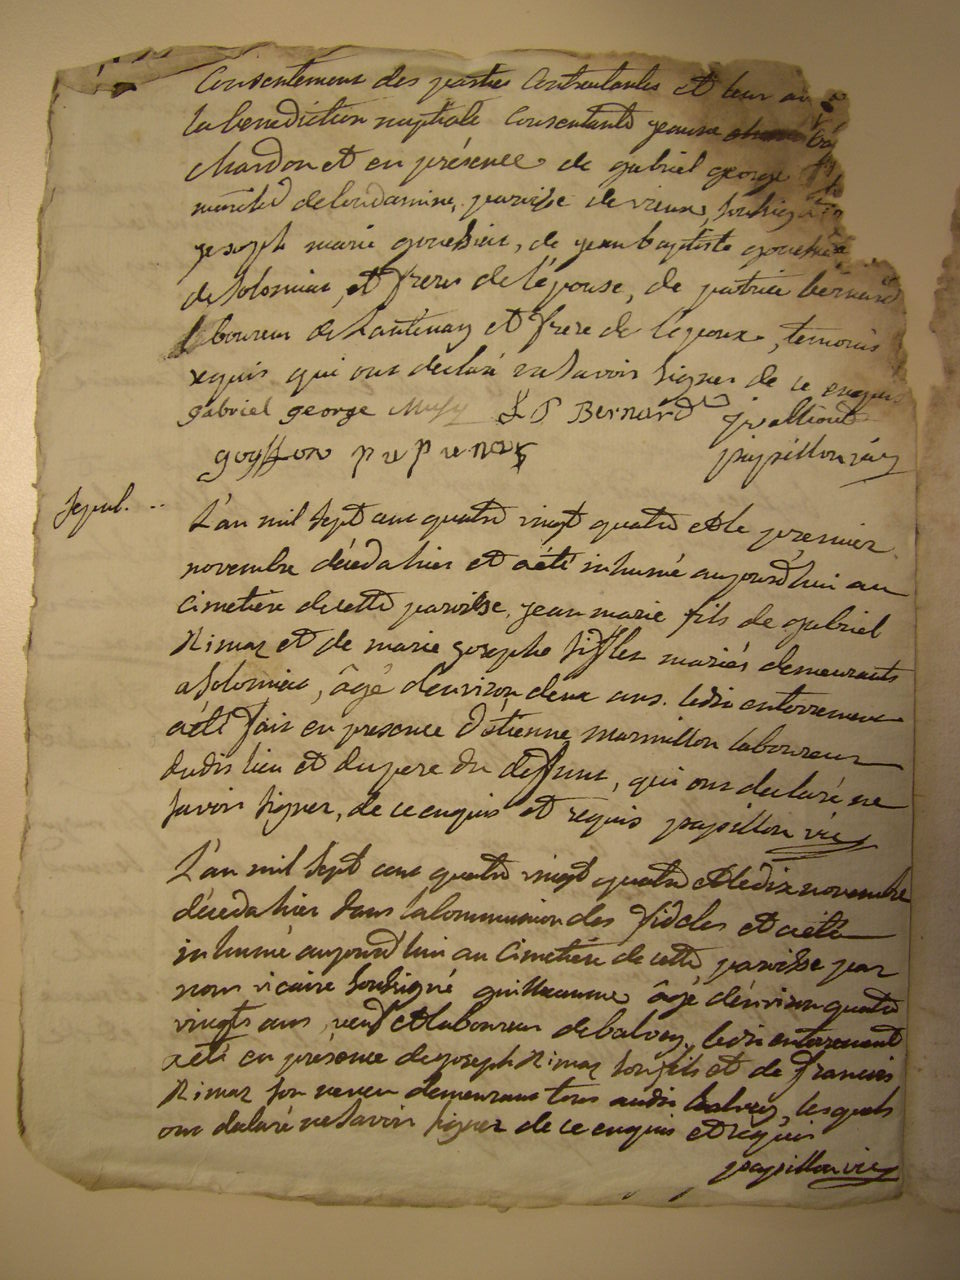 Consentement des parties Contractantes et leur ai
la benediction nuptiale Consentante jeanne
chardon et en présence de gabriel george
marchd de loudamine, paroisse de vieux, soussigné
joseph marie goussier, de jean baptiste
de solomiac, et frere de l'épouse, de patrice bernard
laboureur de Lantenay et frere de l'epoux, temoins
requis qui ont declaré ne savoir signer de ce enquis
gabriel george L P Bernard
goyffon
papillon vic
sepul. ..
L'an mil sept cent quatre vingt quatre et le premier
novembre décéda hier et a été inhumé aujourd'hui au
Cimetière de cette paroisse, jean marie fils de gabriel
Rimaz et de marie josephe siffler mariés demeurants
a solomiac, âgé d'environ deux ans. ledit enterrement
a été fait en presence d'étienne marmillon laboureur
dudit lieu et du pere du deffunt, qui ont declaré ne
savoir signer, de ce enquis et requis papillon vic
L'an mil sept cent quatre vingt quatre et le dix novembre
décéda hier dans la Communion des fideles et a été
inhumé aujourd'hui au Cimetière de cette paroisse par
nous vicaire soussigné guillaume âgé d'environ quatre
vingts ans, veuf et laboureur de balvay, ledit enterrement
a été en présence de joseph Rimaz son fils et de francois
Rimaz son neveu demeurans tous audit balvay, lesquels
ont declaré ne savoir signer de ce enquis et requis
papillon vic